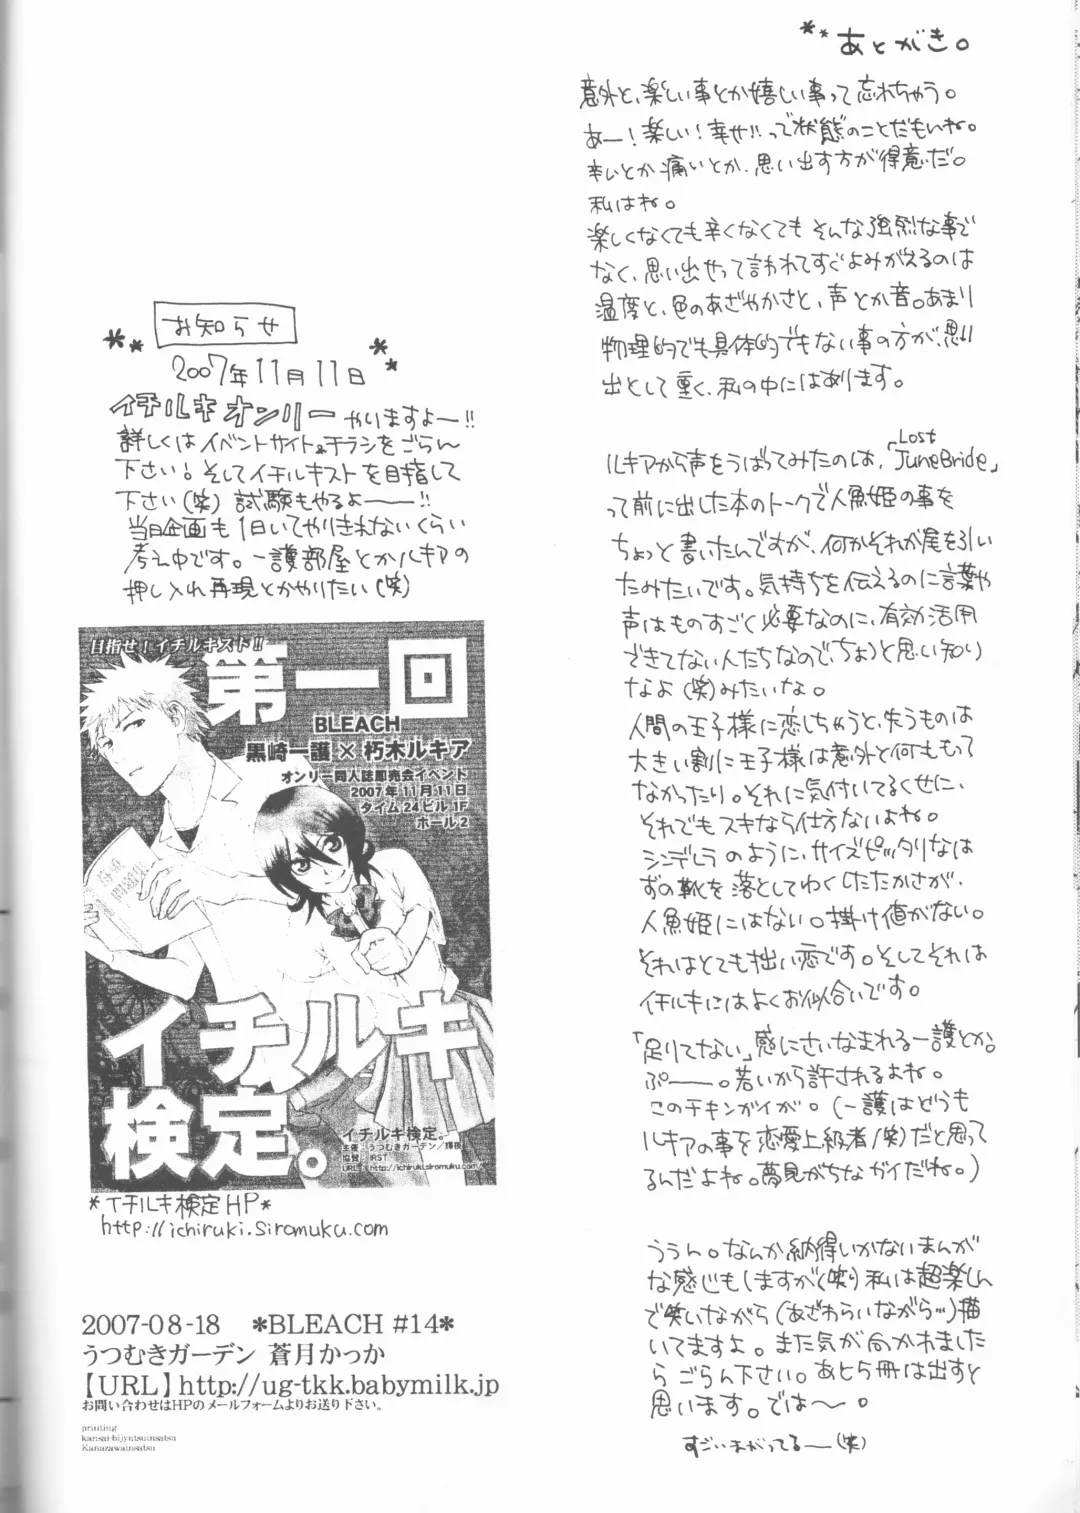 あとがき。
意外と、楽しい事とか嬉しい事って忘れちゃう。
あー!楽しい!幸せ!!って状態のことだもいね。
辛いとか痛いとか、思い出す方が得意だ。
私はね。
楽しくなくても辛くなくてもそんな強烈な事で
なく、思い出せって言われてすぐよみがえるのは
温度と、色のあざやかさと、声とか音。あまり
物理的でも具体的でもない事の方が、思い
出として重く、私の中にはあります。
ルキアから声をうばってみたのは、「Lost JuneBride」
って前に出した本のトークで人魚姫の事を
ちょっと書いたんですが、何かそれが尾を引い
たみたいです。気持ちを伝えるのに言葉や
声はものすごく必要なのに、有効活用
できてない人たちなので、ちょっと思い知り
なよ(笑)みたいな。
人間の王子様に恋しちゃうと、失うものは
大きい割に王子様は意外と何ももって
なかったり。それに気付いてるくせに、
それでもスキなら仕方ないよね。
シンデレラのように、サイズピッタリなは
ずの靴を落としてわくしたたかさが、
人魚姫にはない。掛け値がない。
それはとても拙い恋です。そしてそれは
イチルキにはよくお似合いです。
「足りてない」感にさいなまれる一護とか。
ぷーー。若いから許されるよね。
このチキンガイが。(一護はどうも
ルキアの事を恋愛上級者(笑)だと思って
るんだよね。夢見がちなガイだね。)
ううん。なんか納得いかないまんが
な感じもしますが(笑)私は超楽しん
で笑いながら(あざわらいながら…)描
いてますよ。また気が向かれました
らごらん下さい。あと5冊は出すと
思います。では〜。
すごいまがってるー(笑)
お知らせ
2007年11月11日
イチルキオンリーやりますよー!!
詳しくはイベントサイト&チラシをごらん
下さい!そしてイチルキストを目指して
下さい(笑)試験もやるよーー!!
当日企画も1日いてやりきれないくらい
考え中です。一護部屋とかルキアの
押し入れ再現とかやりたい(笑)
目指せ!イチルキスト!!
第一回
BLEACH
黒崎一護×朽木ルキア
オンリー同人誌即売会イベント
2007年11月11日
タイム24ビル1F
ホール2
イチルキ
検定。
イチルキ検定。
主催:うつむきガーデン/輝夜
協賛:IRST
URL:http://ichiruki.siromuku.com/
*イチルキ検定HP*
http://ichiruki.siromuku.com
2007-08-18 *BLEACH #14*
うつむきガーデン 蒼月かっか
【URL】http://ug-tkk.babymilk.jp
お問い合わせはHPのメールフォームよりお送り下さい。
printing
kansai-bijyutsuinsatsu
Kanazawainsatsu